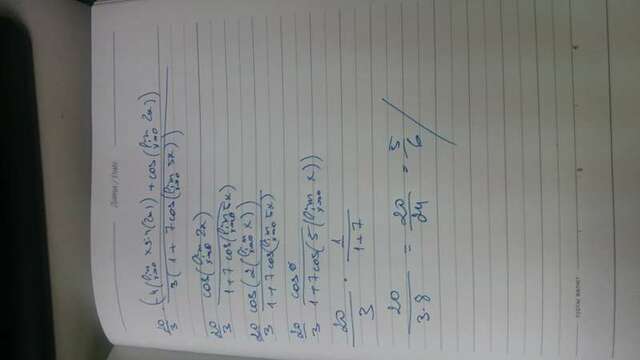 20/3 · (4(lim x→0 x sin(2x)) + cos(lim x→0 2x)) / 3(1+7cos(lim x→0 5x))
20/3 cos(lim x→0 2x) / 1+7cos(lim x→0 5x)
20/3 cos(2(lim x→0 x)) / 1+7cos(lim x→0 5x)
20/3 cos 0 / 1+7cos(5(lim x→0 x))
20/3 · 1/1+7
20/3·8 = 20/24 = 5/6